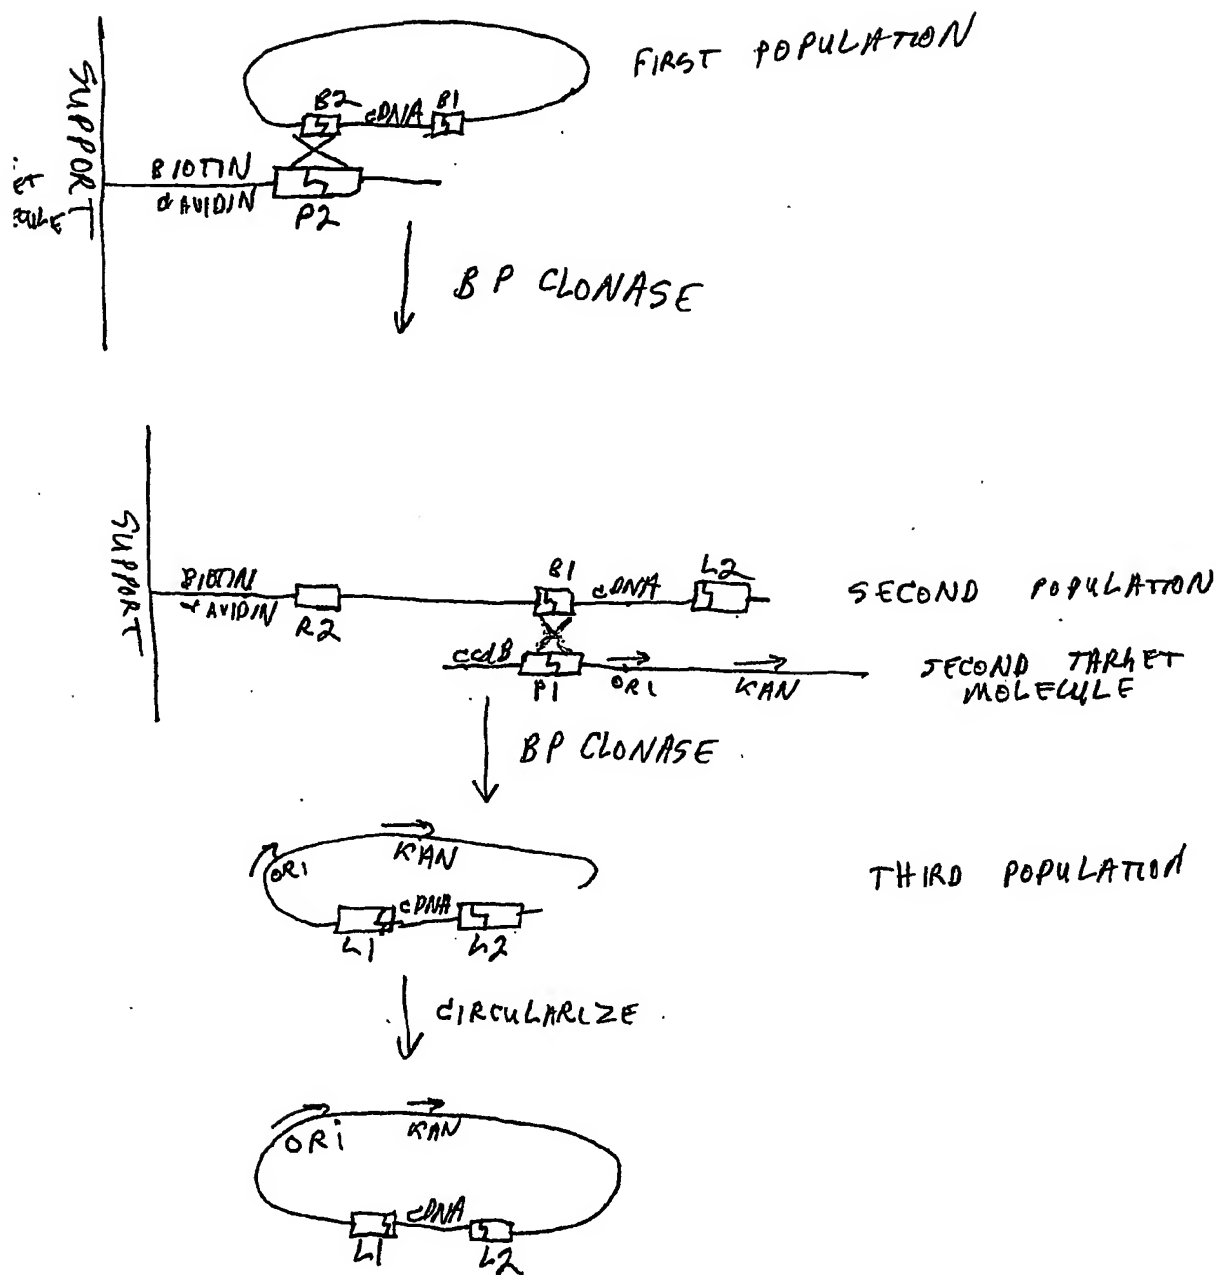 FIRST POPULATION
SUPPORT
B2 cDNA B1
BIOTIN
& AVIDIN
P2
BP CLONASE
SUPPORT
BIOTIN
& AVIDIN
R2
B1 cDNA L2
SECOND POPULATION
ccdB P1 ORI KAN
SECOND TARGET
MOLECULE
BP CLONASE
ORI KAN
THIRD POPULATION
L1 cDNA L2
CIRCULARIZE
ORI KAN
L1 cDNA L2